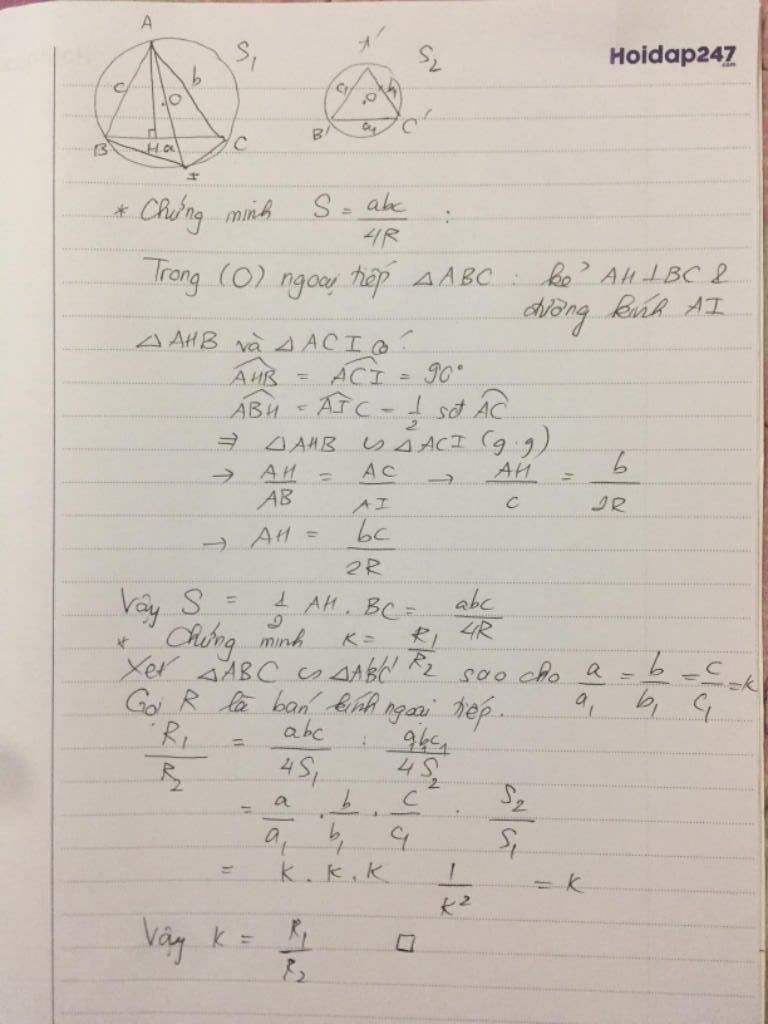 Hoidap247
.com
A
S₁
c
b
O
B
H
a
C
I
A'
S₂
c₁
b₁
O
B'
a₁
C'
* Chứng minh S = abc/4R :
Trong (O) ngoại tiếp △ABC : kẻ AH⊥BC &
đường kính AI
△AHB và △ACI có:
AHB = ACI = 90°
ABH = AIC = 1/2 sđt AC
⇒ △AHB ∽ △ACI (g.g)
→ AH/AB = AC/AI → AH/c = b/2R
→ AH = bc/2R
Vậy S = 1/2 AH. BC = abc/4R
* Chứng minh K = R₁/R₂
Xét △ABC ∽ △A'B'C' sao cho a/a₁ = b/b₁ = c/c₁ = K
Gọi R là bán kính ngoại tiếp.
R₁/R₂ = abc/4S₁ : a₁b₁c₁/4S₂
= a/a₁ . b/b₁ . c/c₁ . S₂/S₁
= K . K . K 1/K² = K
Vậy K = R₁/R₂ □